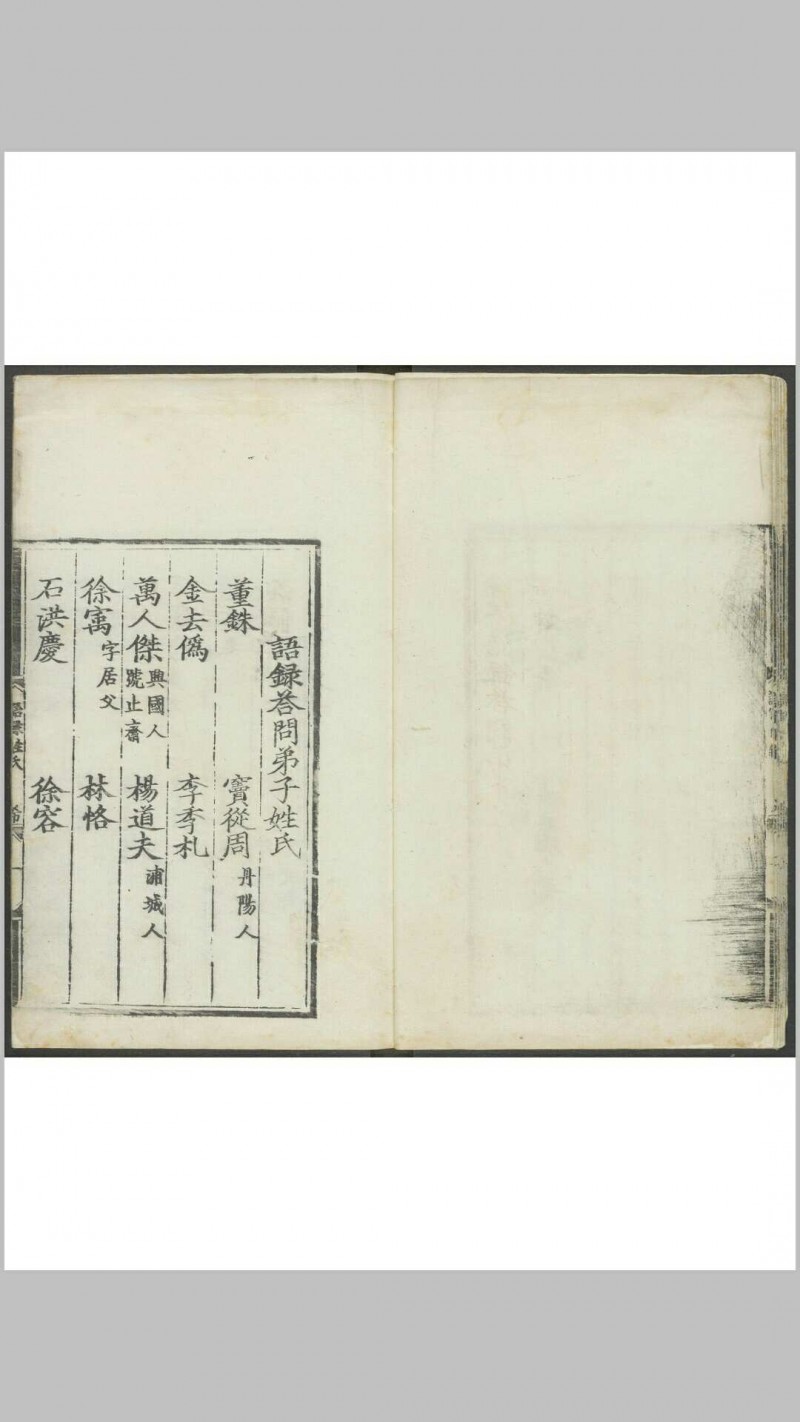 語録荅問弟子姓氏
董銖 竇從周 丹陽人
金去僞 李季札
萬人傑 興國人 號止齋 楊道夫 浦城人
徐㝢 字居父 林恪
石洪慶 徐容